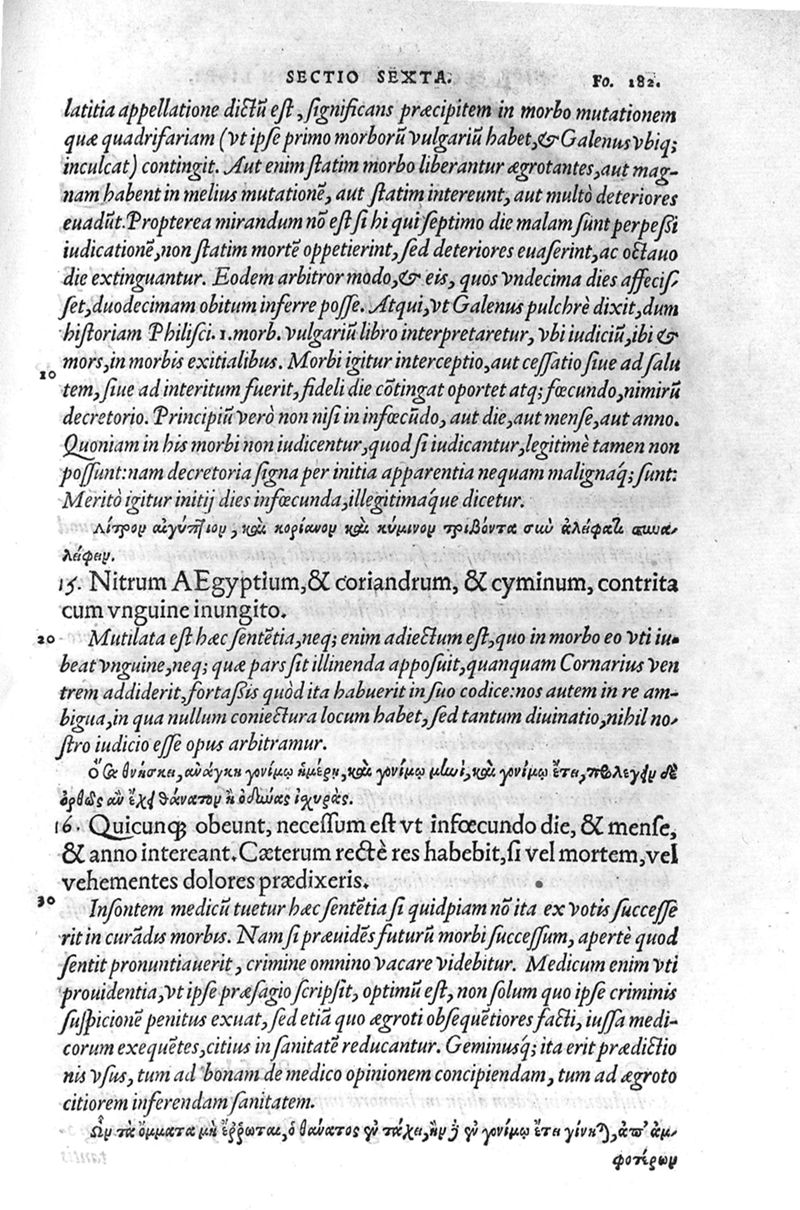 SECTIO SEXTA. Fo. 182.
latitia appellatione dictũ est, significans præcipitem in morbo mutationem
quæ quadrifariam (vt ipse primo morborũ vulgariũ habet, & Galenus vbiq;
inculcat) contingit. Aut enim statim morbo liberantur ægrotantes, aut mag-
nam habent in melius mutationẽ, aut statim intereunt, aut multò deteriores
euadũt. Propterea mirandum nõ est si hi qui septimo die malam sunt perpeßi
iudicationẽ, non statim mortẽ oppetierint, sed deteriores euaserint, ac octauo
die extinguantur. Eodem arbitror modo, & eis, quos vndecima dies affecis
set, duodecimam obitum inferre posse. Atqui, vt Galenus pulchrè dixit, dum
historiam Philisci. 1. morb. vulgariũ libro interpretaretur, vbi iudiciũ, ibi &
10 mors, in morbis exitialibus. Morbi igitur interceptio, aut cessatio siue ad salu
tem, siue ad interitum fuerit, fideli die cõtingat oportet atq; fœcundo, nimirũ
decretorio. Principiũ verò non nisi in infœcũdo, aut die, aut mense, aut anno.
Quoniam in his morbi non iudicentur, quod si iudicantur, legitimè tamen non
possunt: nam decretoria signa per initia apparentia nequam malignaq́; sunt:
Meritò igitur initij dies infœcunda, illegitimaque dicetur.
Λίτρον αἰγύπτιον, καὶ κορίανον καὶ κύμινον τρίβοντα σὺν ἀλείφατι συνα-
λείφειν.
15. Nitrum AEgyptium, & coriandrum, & cyminum, contrita
cum vnguine inungito.
20 Mutilata est hæc sentẽtia, neq; enim adiectum est, quo in morbo eo vti iu-
beat vnguine, neq; quæ pars sit illinenda apposuit, quanquam Cornarius ven
trem addiderit, fortaßis quòd ita habuerit in suo codice: nos autem in re am-
bigua, in qua nullum coniectura locum habet, sed tantum diuinatio, nihil no-
stro iudicio esse opus arbitramur.
Ὅσα θνήσκει, ἀνάγκη γονίμῳ ἡμέρῃ, καὶ γονίμῳ μηνὶ, καὶ γονίμῳ ἔτει, προλέγειν δὲ
ὀρθῶς ἂν ἔχει θάνατον ἢ ὀδύνας ἰσχυράς.
16. Quicunq; obeunt, necessum est vt infœcundo die, & mense,
& anno intereant. Cæterum rectè res habebit, si vel mortem, vel
vehementes dolores prædixeris.
30 Insontem medicũ tuetur hæc sentẽtia si quidpiam nõ ita ex votis successe
rit in curãdis morbis. Nam si præuidẽs futurũ morbi successum, apertè quod
sentit pronuntiauerit, crimine omnino vacare videbitur. Medicum enim vti
prouidentia, vt ipse præsagio scripsit, optimũ est, non solum quo ipse criminis
suspicionẽ penitus exuat, sed etiã quo ægroti obsequẽtiores facti, iussa medi-
corum exequẽtes, citius in sanitatẽ reducantur. Geminusq́; ita erit prædictio
nis vsus, tum ad bonam de medico opinionem concipiendam, tum ad ægroto
citiorem inferendam sanitatem.
Ὧν τὰ ὄμματα μὴ ἔρρωται, ὁ θάνατος ἐν τάχει, ἢν δὲ ἐν γονίμῳ ἔτει γίνηται, ἀπ' ἀμ-
φοτέρων